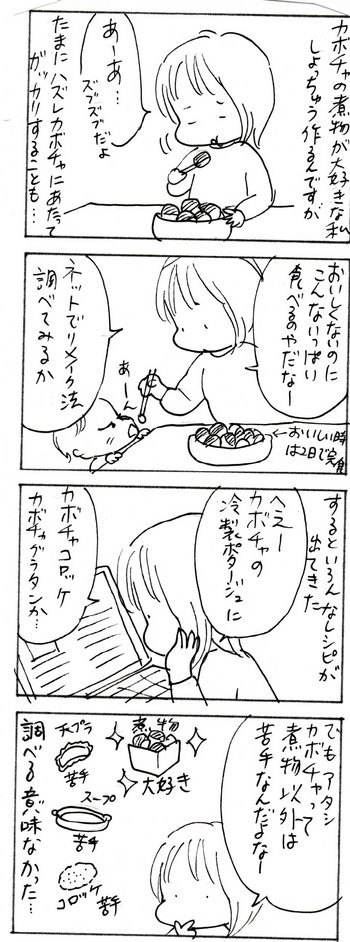 カボチャの煮物が大好きな私
しょっちゅう作るんですが
あーあ…
ズブズブだよ
たまにハズレカボチャにあたって
ガッカリすることも…
おいしくないのに
こんないっぱい
食べるのやだなー
←おいしい時
は2日で完食
あーん
ネットでリメイク法
調べてみるか
するといろんなレシピが
出てきた
へえー
カボチャの
冷製ポタージュに
カボチャコロッケ
カボチャグラタンか…
でもアタシ
カボチャって
煮物以外は
苦手なんだよなー
煮物
大好き
天プラ
苦手
スープ
苦手
コロッケ
苦手
調べる意味なかった…